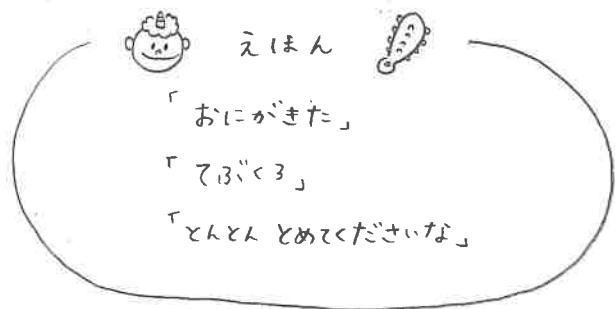 えほん
「おにがきた」
「てぶくろ」
「とんとん とめてくださいな」